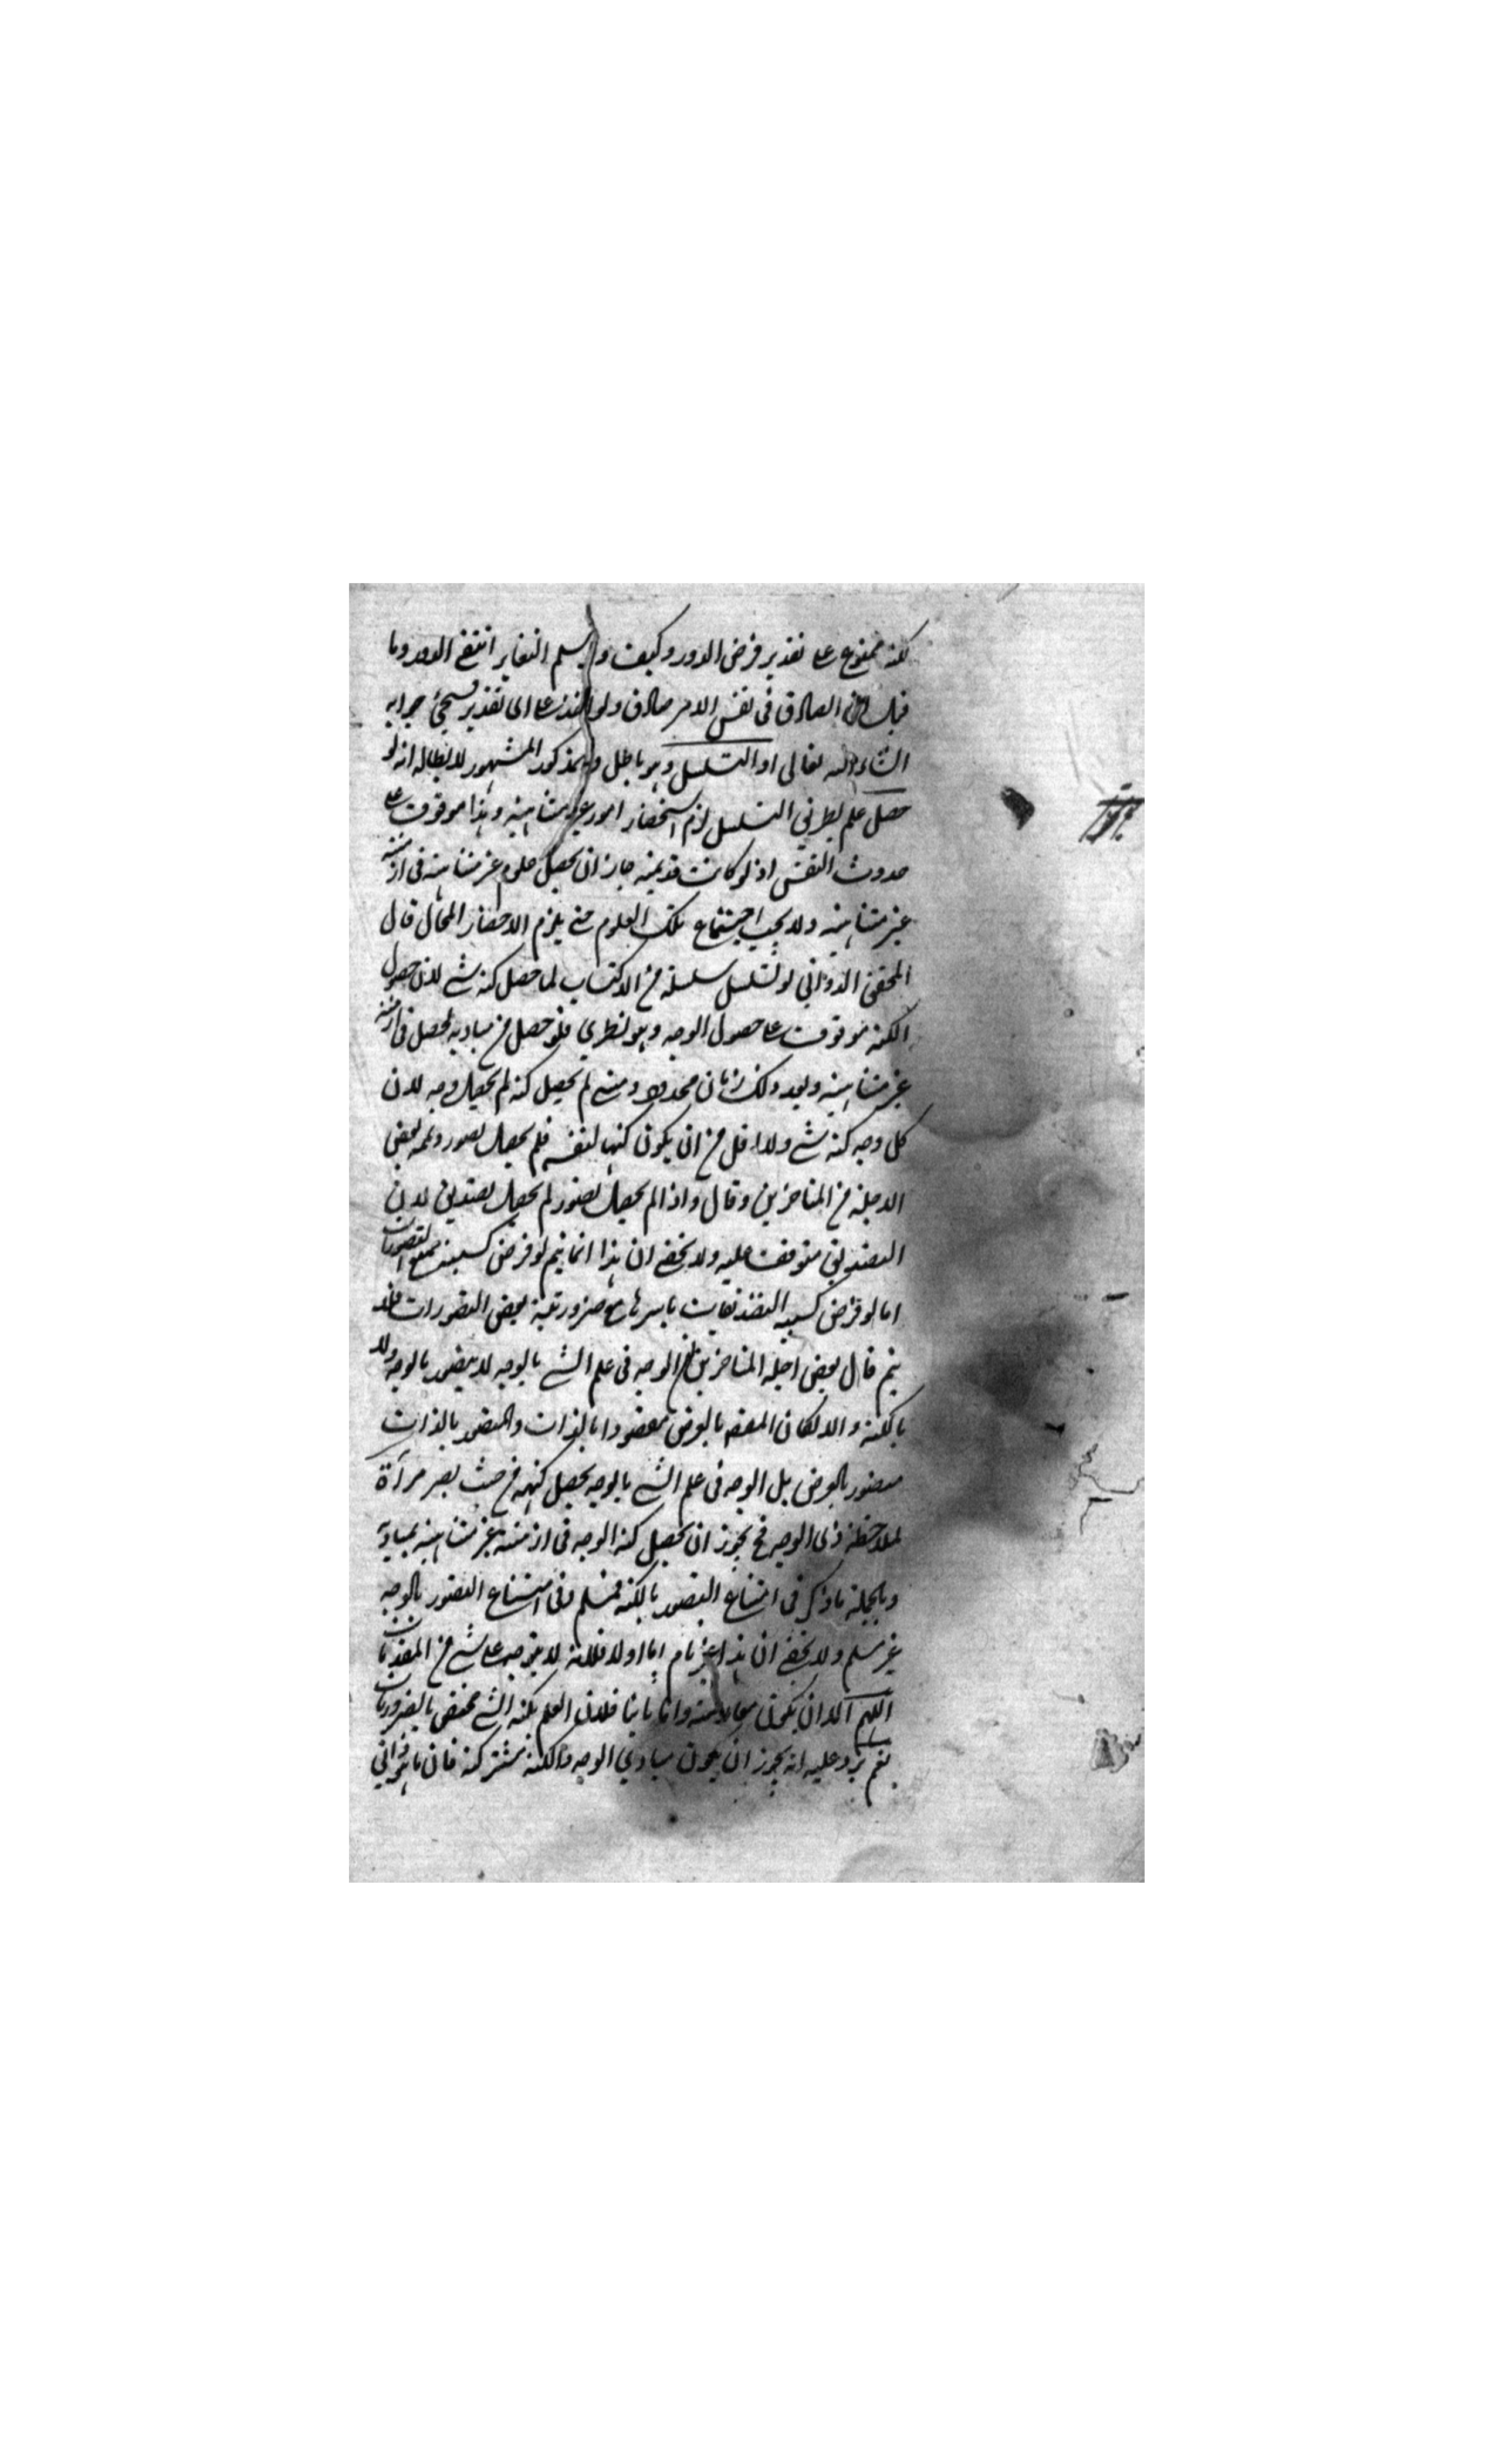 لكنه ممنوع على تقدير فرض الدور وكيف ولو سلم التغاير انتفى الدور وما
قيل ان الصادق في نفس الامر صادق ولو على اى تقدير فسيجئ جوابه
انشاء الله تعالى او التسلسل وهو باطل والمذكور المشهور لابطاله انه لو
حصل علم بطريق التسلسل لزم استحضار امور غير متناهية وهذا موقوف على
حدوث النفس اذ لو كانت قديمة جاز ان يحصل علوم غير متناهية فى ازمنة
غير متناهية ولا يجب اجتماع تلك العلوم حتى يلزم الاحضار المحال قال
المحقق الدواني لو تسلسل سلسلة من الاكتساب لما حصل كنه شے لان حصول
الكنه موقوف على حصول الوجه وهو نظري فلو حصل من مباديه لحصل فى ازمنة
غير متناهية وبعد ذلك زمان محدود ومتى لم يحصل كنه لم يحصل وجه لان
كل وجه كنه شے ولا اقل من ان يكون كنها لنفسه فلم يحصل تصور وتممه بعض
الاجلة من المتاخرين وقال واذا لم يحصل تصور لم يحصل تصديق لان
التصديق متوقف عليه ولا يخفى ان هذا انما يتم لو فرض كسبية جميع التصورات
اما لو فرض كسبية التصديقات باسرها مع ضرورية بعض التصورات فلا
يتم قال بعض اجلة المتاخرين الوجه فى علم الشے بالوجه لا يتصور بالوجه ولا
بالكنه والا لكان المقصود بالعرض مقصودا بالذات والمتصور بالذات
متصور بالعرض بل الوجه فى علم الشے بالوجه يحصل كنهه من حيث يصير مرآة
لملاحظة ذى الوجه فح يجوز ان يحصل كنه الوجه فى ازمنة غير متناهية بمباديه
وبالجملة ما ذكر فى امتناع التصور بالكنه فمسلم وفى امتناع التصور بالوجه
غير مسلم ولا يخفى ان هذا غير تام اما اولا فلانه لا يتوجه على شے من المقدمات
اللهم الا ان يكون معارضة واما ثانيا فلان العلم بكنه الشے مختص بالضروريات
نعم يرد عليه انه يجوز ان يكون مبادي الوجه والكنه مشتركة فان ما هو ذاتي